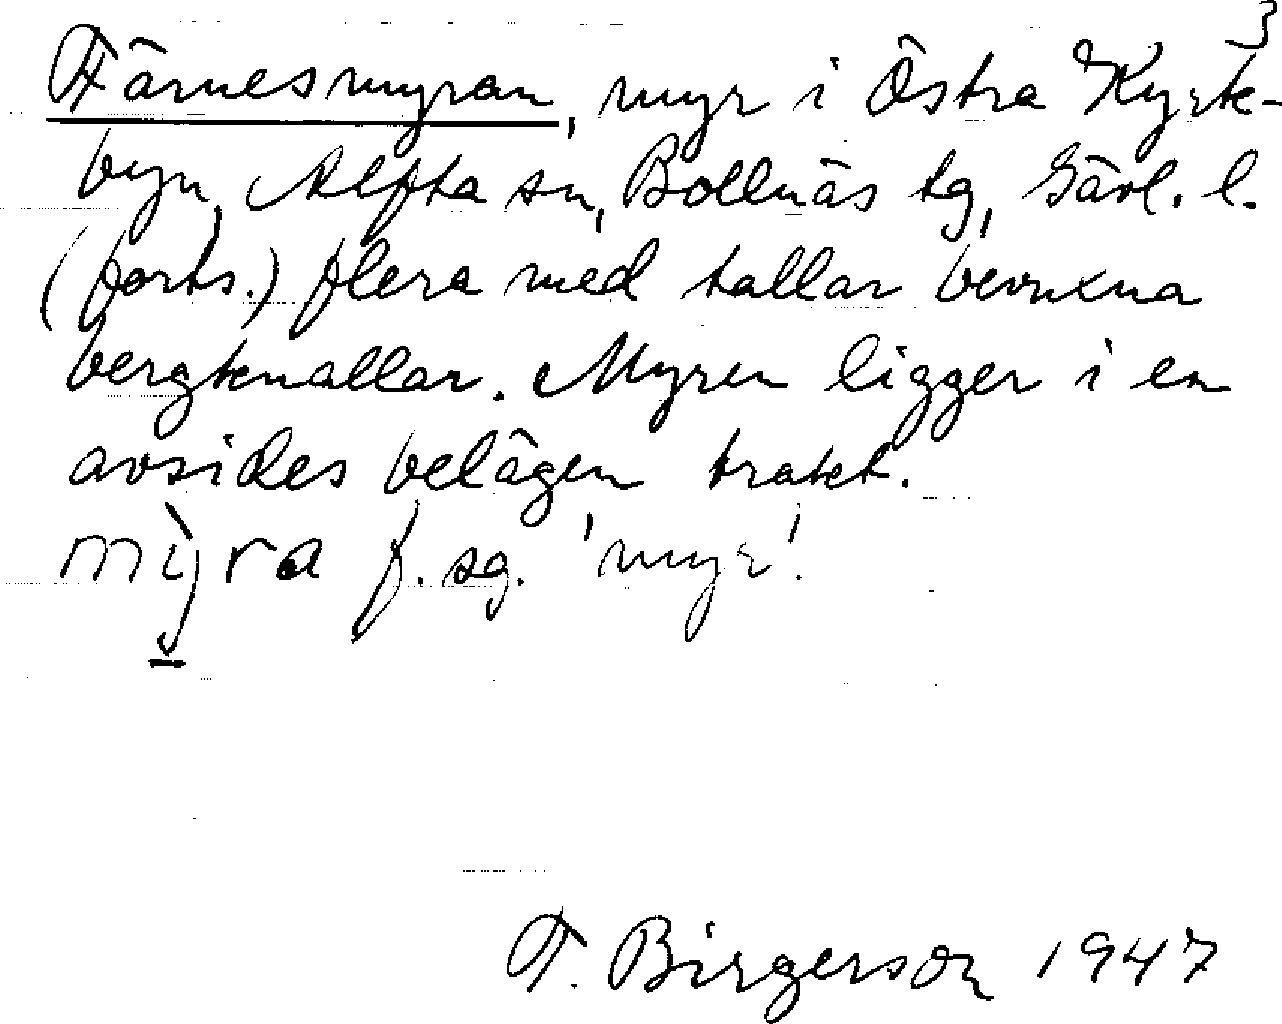 3
Färnesmyran, myr i Östra Kyrk-
byn, Alfta sn, Bollnäs tg, Gävl. l.
(forts.) flera med tallar bevuxna
bergknallar. Myren ligger i en
avsides belägen trakt.
mỳra f. sg. 'myr'.
F. Birgerson 1947